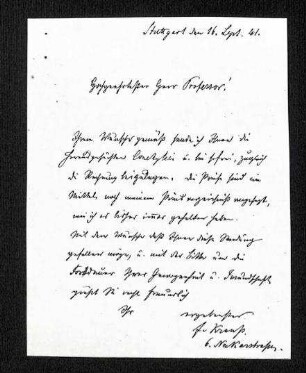 Stuttgart den 16. Sept. 41.
Hochgeehrtester Herr Professor!
Ihrem Wunsche gemäß sende ich Ihnen die
u. bin so frei, zugleich
die Rechnung beizulegen. die Preise sind im
Mittel, nach meinem Preisverzeichniß angesetzt,
wie ich es bisher immer gehalten habe.
Mit dem Wunsche daß Ihnen diese Sendung
gefallen möge, u. mit der Bitte um die
Fortdauer Ihrer Gewogenheit u. Freundschaft
grüßt Sie recht freundlich
Ihr ergebenster
F. Krauß.
6. Neckarstraße.